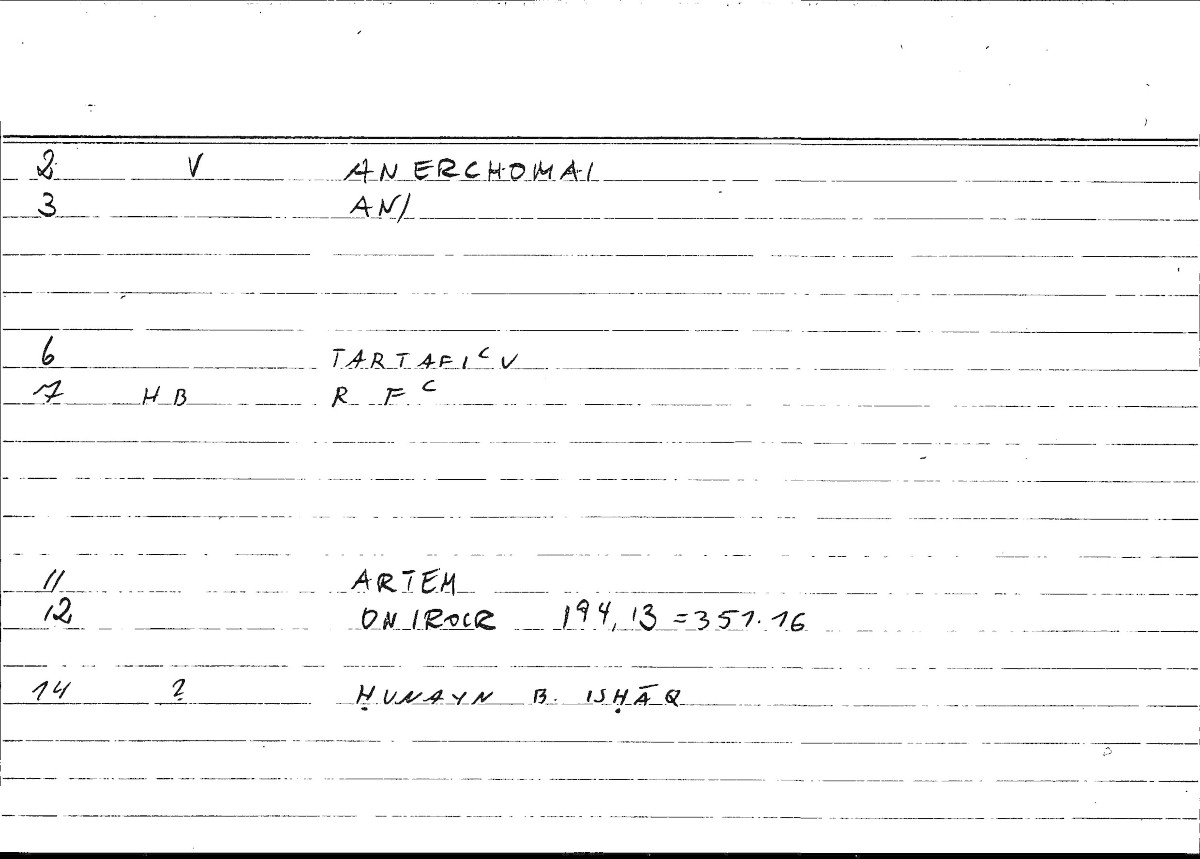 2 V ANERCHOMAI
3 AN/
6 TARTAFIᶜU
7 HB R Fᶜ
11 ARTEM
12 ONIROCR 194,13=351.16
14 ? ḤUNAYN B. ISḤĀQ